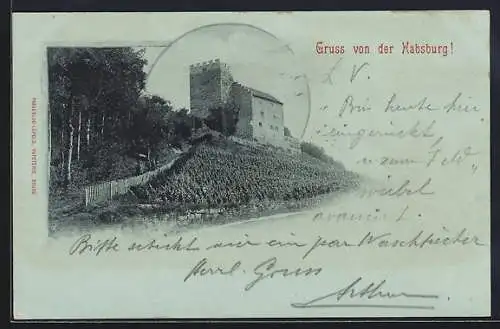 Gruss von der Habsburg!
L. V.
Bin heute hier
eingerückt
u. zum Feld
avanciert.
Bitte schickt mir ein par Waschtücher
Herzl. Gruss
Arthur